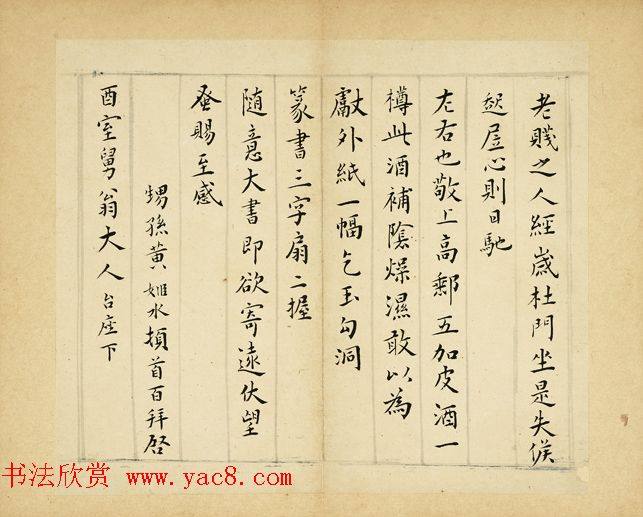 老賤之人經歲杜門坐是失候
起居心則日馳
左右也敬上高郵五加皮酒一
樽此酒補陰燥濕敢以為
獻外紙一幅乞玉勾洞
篆書三字扇二握
隨意大書即欲寄遠伏望
蚤賜至感
甥孫黃姬水頓首百拜啓
酉室舅翁大人台座下
书法欣赏 www.yac8.com